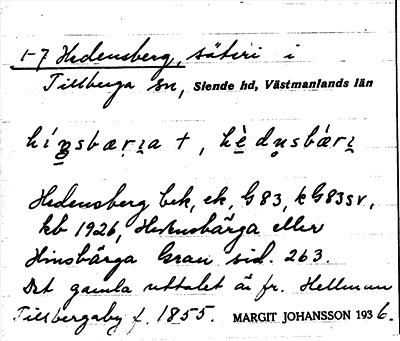 1-7 Hedensberg, säteri i
Tillberga sn, Siende hd, Västmanlands län
hínsbærɪa †, hèdn̥sbærɪ
Hedensberg bek, ek, G 83, kG83SV,
kb 1926, Hedensbärga eller
Hinsbärga Grau sid. 263.
Det gamla uttalet är fr. Hellman
Tillbergaby f. 1855. MARGIT JOHANSSON 1936.